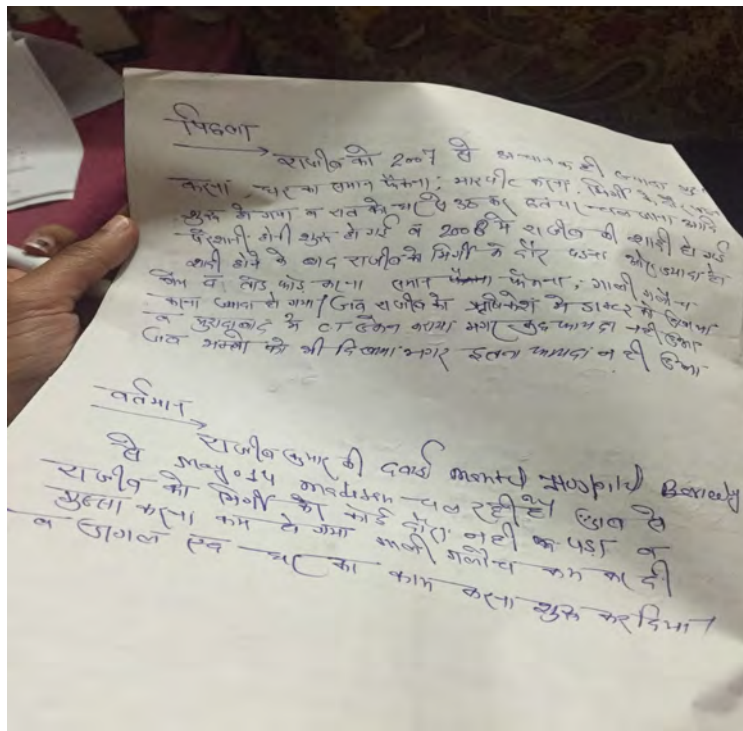 पिछला
राजीव को 2007 से अचानक ही ज्यादा
करना घर का समान फैंकना, मारपीट करना मिर्गी के दौरे
शुरू हो गया व रात को घर से उठ कर चला जाना आदि
परेशानी होनी शुरू हो गई व 2008 मे राजीव की शादी हो गई
शादी होने के बाद राजीव को मिर्गी के दौरे पडना ओर ज्यादा हो
गया व तोड फोड करना समान फैंकना, गाली गलौच
करना ज्यादा हो गया। जब राजीव को ऋषिकेश मे डाक्टर को दिखाया
व मुरादाबाद मे CT स्केन कराया मगर कुछ फायदा नही हुआ
जब भी दिखाया मगर इतना फायदा न ही हुआ
वर्तमान
राजीव कुमार की दवाई Mental Hospital Bareilly
से May 014 चल रही है। जब से
राजीव को मिर्गी का कोई दौरा नही पडा व
गुस्सा करना कम हो गया गाली गलौच कम कर दी
व एव घर का काम करना शुरू कर दिया।